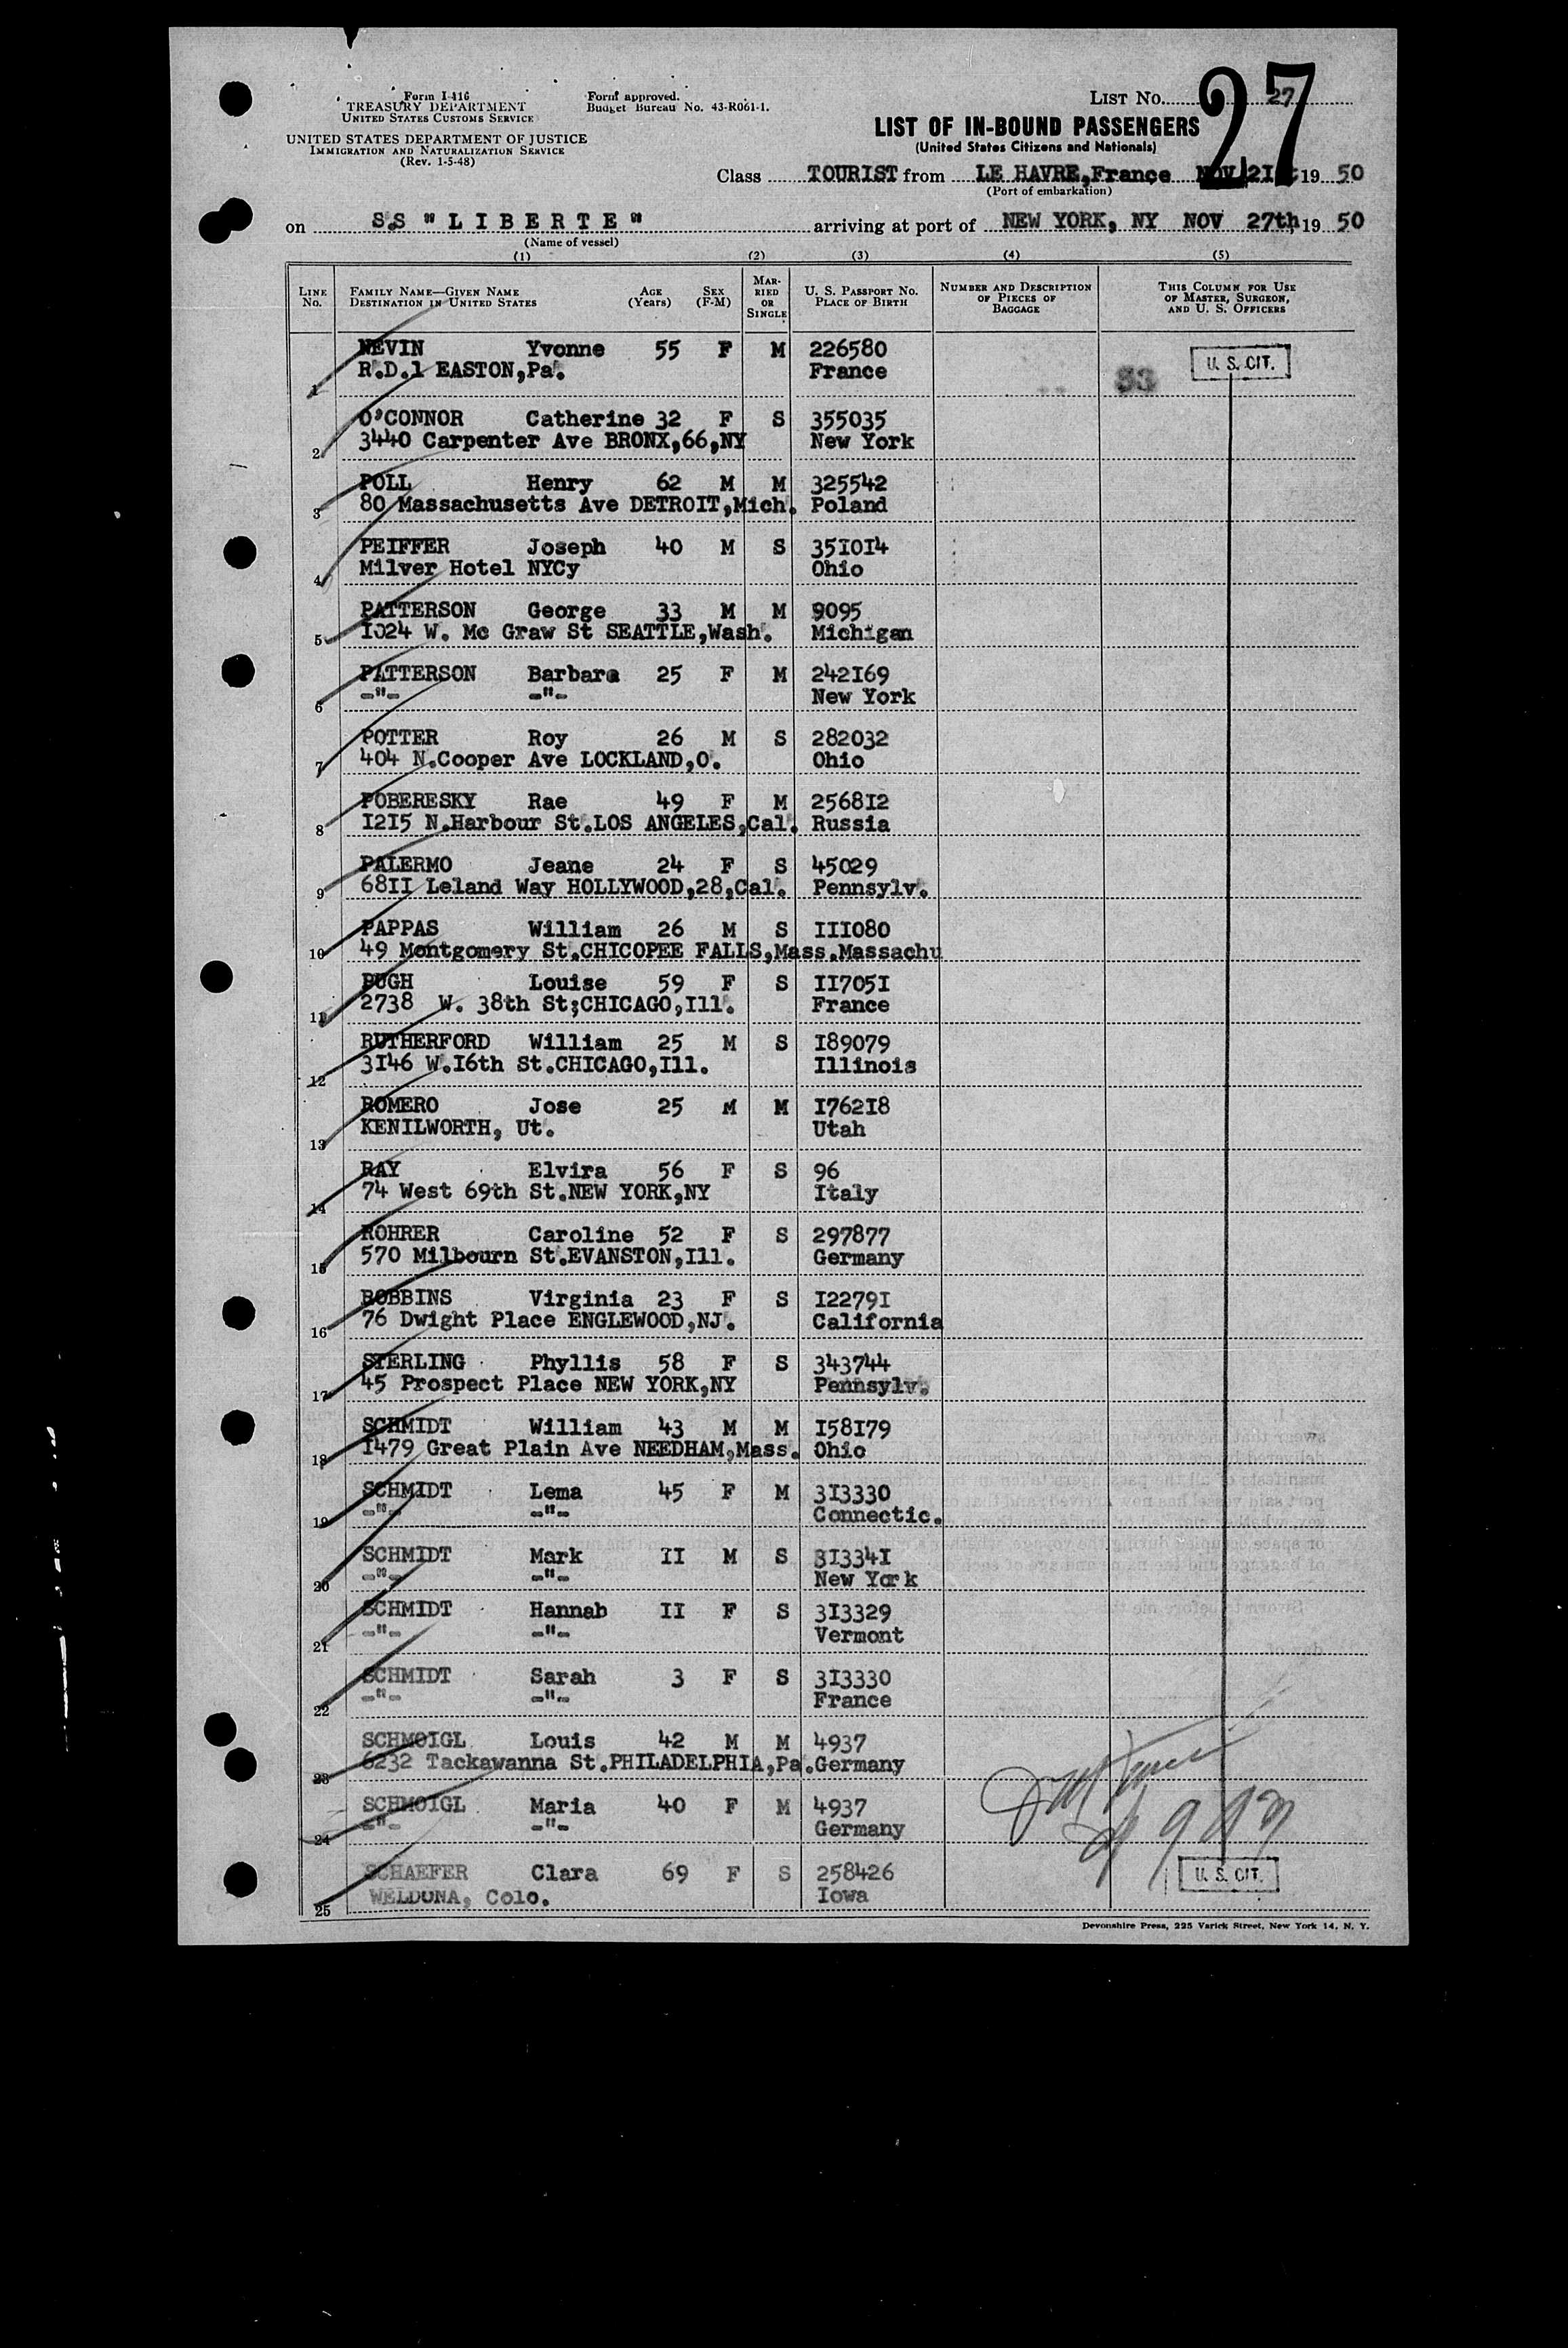 Form I-416
TREASURY DEPARTMENT
UNITED STATES CUSTOMS SERVICE
UNITED STATES DEPARTMENT OF JUSTICE
IMMIGRATION AND NATURALIZATION SERVICE
(Rev. 1-5-48)
Form approved.
Budget Bureau No. 43-R061-1.
LIST NO. 27
27
LIST OF IN-BOUND PASSENGERS
(United States Citizens and Nationals)
Class TOURIST from LE HAVRE,France NOV 21st 19 50
(Port of embarkation)
on S.S "LIBERTE" arriving at port of NEW YORK, NY NOV 27th, 19 50
(Name of vessel)
(1) (2) (3) (4) (5)
LINE No. FAMILY NAME—GIVEN NAME DESTINATION IN UNITED STATES AGE (Years) SEX (F-M) MARRIED OR SINGLE U. S. PASSPORT NO. PLACE OF BIRTH NUMBER AND DESCRIPTION OF PIECES OF BAGGAGE THIS COLUMN FOR USE OF MASTER, SURGEON, AND U. S. OFFICERS
NEVIN Yvonne 55 F M 226580 U. S. CIT.
1 R.D.1 EASTON,Pa. France 53
O'CONNOR Catherine 32 F S 355035
2 3440 Carpenter Ave BRONX,66,NY New York
POLL Henry 62 M M 325542
3 80 Massachusetts Ave DETROIT,Mich. Poland
PEIFFER Joseph 40 M S 351014
4 Milver Hotel NYCy Ohio
PATTERSON George 33 M M 9095
5 1024 W. Mc Graw St SEATTLE,Wash. Michigan
PATTERSON Barbara 25 F M 242169
6 -"- -"- New York
POTTER Roy 26 M S 282032
7 404 N.Cooper Ave LOCKLAND,O. Ohio
POBERESKY Rae 49 F M 256812
8 1215 N.Harbour St.LOS ANGELES,Cal. Russia
PALERMO Jeane 24 F S 45029
9 6811 Leland Way HOLLYWOOD,28,Cal. Pennsylv.
PAPPAS William 26 M S 111080
10 49 Montgomery St.CHICOPEE FALLS,Mass.Massachu
PUGH Louise 59 F S 117051
11 2738 W. 38th St;CHICAGO,Ill. France
RUTHERFORD William 25 M S 189079
12 3146 W.16th St.CHICAGO,Ill. Illinois
ROMERO Jose 25 M M 176218
13 KENILWORTH, Ut. Utah
RAY Elvira 56 F S 96
14 74 West 69th St.NEW YORK,NY Italy
ROHRER Caroline 52 F S 297877
15 570 Milbourn St.EVANSTON,Ill. Germany
ROBBINS Virginia 23 F S 122791
16 76 Dwight Place ENGLEWOOD,NJ. California
STERLING Phyllis 58 F S 343744
17 45 Prospect Place NEW YORK,NY Pennsylv.
SCHMIDT William 43 M M 158179
18 1479 Great Plain Ave NEEDHAM,Mass. Ohio
SCHMIDT Lema 45 F M 313330
19 -"- -"- Connectic.
SCHMIDT Mark 11 M S 313341
20 -"- -"- New York
SCHMIDT Hannah 11 F S 313329
21 -"- -"- Vermont
SCHMIDT Sarah 3 F S 313330
22 -"- -"- France
SCHMOIGL Louis 42 M M 4937
23 6232 Tackawanna St.PHILADELPHIA,Pa.Germany
SCHMOIGL Maria 40 F M 4937
24 -"- -"- Germany
SCHAEFER Clara 69 F S 258426 U. S. CIT.
25 WELDONA, Colo. Iowa
Devonshire Press, 225 Varick Street, New York 14, N. Y.